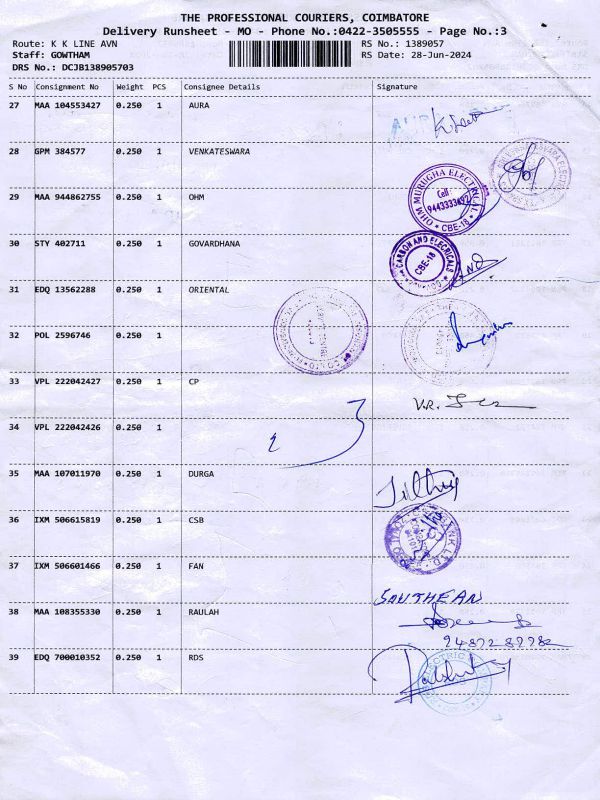 THE PROFESSIONAL COURIERS, COIMBATORE
Delivery Runsheet - MO - Phone No.:0422-3505555 - Page No.:3
Route: K K LINE AVN RS No.: 1389057
Staff: GOWTHAM RS Date: 28-Jun-2024
DRS No.: DCJB138905703
S No Consignment No Weight PCS Consignee Details Signature
27 MAA 104553427 0.250 1 AURA
28 GPM 384577 0.250 1 VENKATESWARA
29 MAA 944862755 0.250 1 OHM
OHM MURUGHA ELECTRICAL
Cell :
CBE-18
30 STY 402711 0.250 1 GOVARDHANA
CARBON AND ELECRICALS
CBE-18
31 EDQ 13562288 0.250 1 ORIENTAL
32 POL 2596746 0.250 1
33 VPL 222042427 0.250 1 CP
V.R.
34 VPL 222042426 0.250 1
35 MAA 107011970 0.250 1 DURGA
36 IXM 506615819 0.250 1 CSB
37 IXM 506601466 0.250 1 FAN
SOUTHEAN
38 MAA 108355330 0.250 1 RAULAH
39 EDQ 700010352 0.250 1 RDS